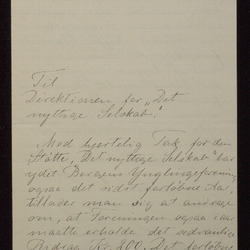 Til
Direktionen for „Det
nyttige Selskab".
Med hjertelig Tak for den
Støtte, „Det nyttige Selskab" har
ydet Bergens Ynglingeforening
ogsaa det sidst forløbne Aar,
tillader man sig at andrage
om, at Foreningen ogsaa i aar
maatte erholde det sedvanlige
Bidrag Kr. 200. Det forløbne